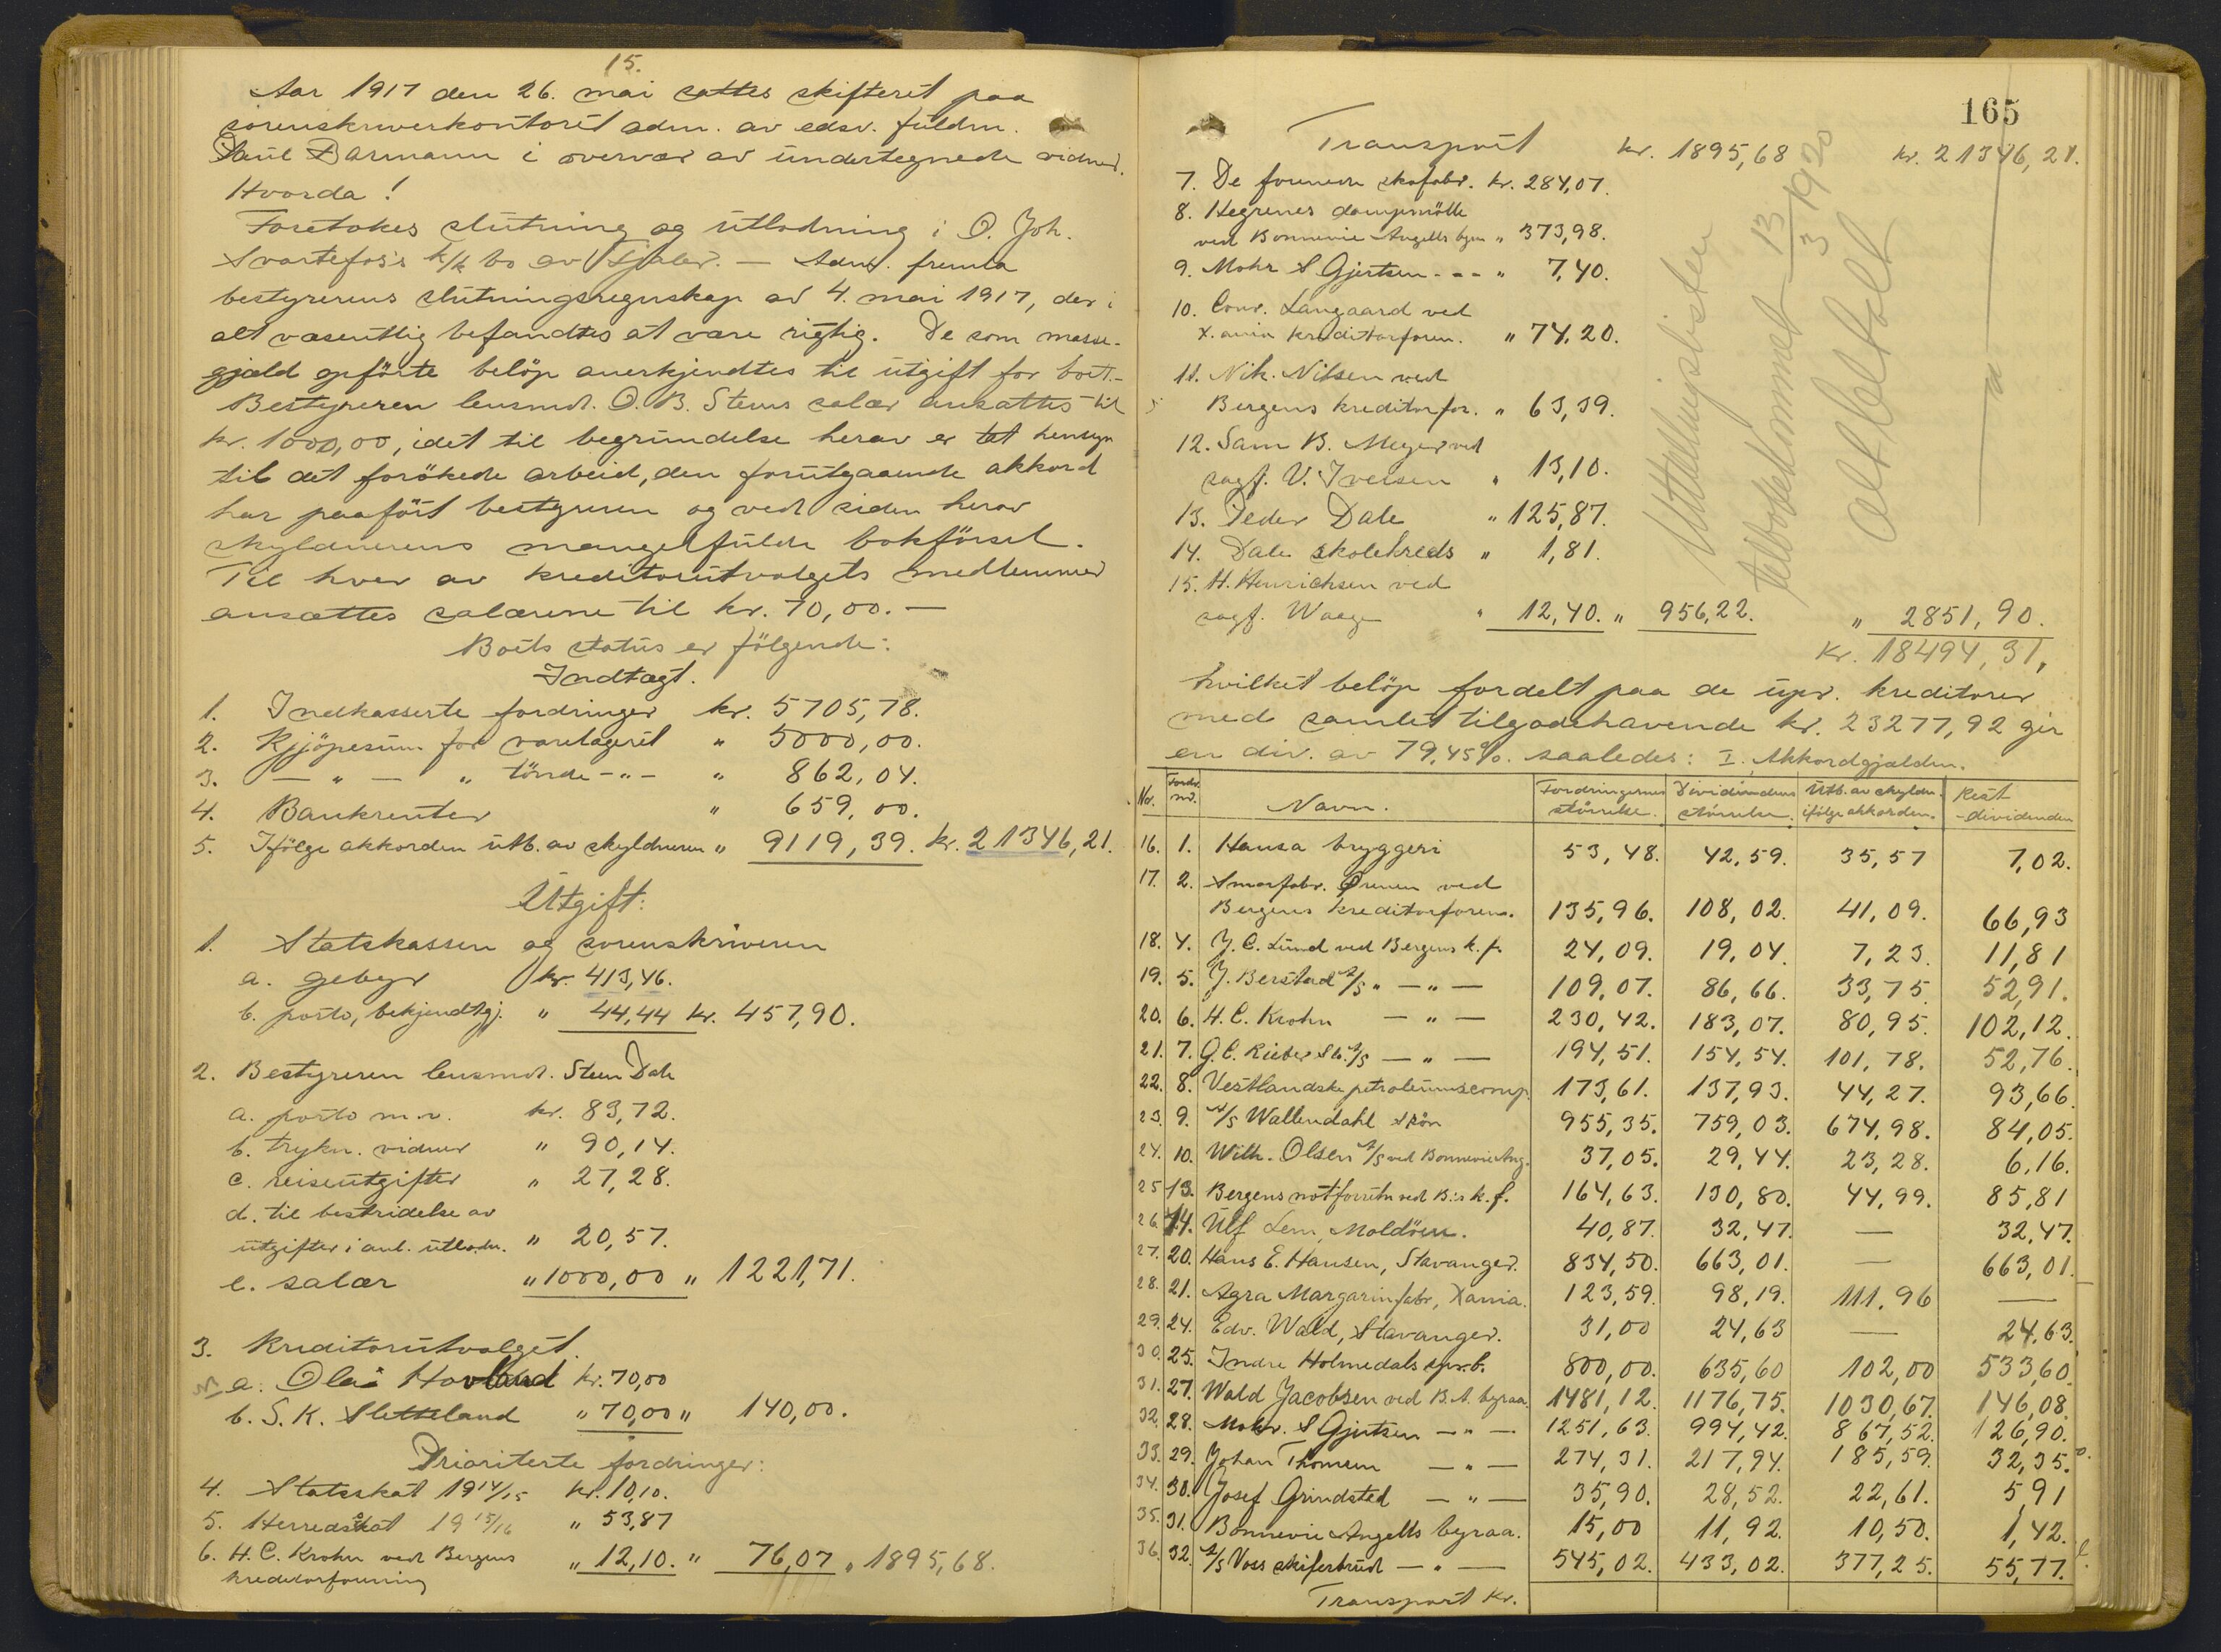 15.
Aar 1917 den 26. mai sattes skifteret paa
sorenskriverkontoret adm. av edsv. fuldm.
Paul Darmann i overvær av undertegnede vidner.
Hvorda!
Foretokes slutning og utlodning i O. Joh.
Svartefoss k/k bo av Fjaler. — Adm. fremla
bestyrerens slutningsregnskap av 4. mai 1917, der i
alt væsentlig befandtes at være rigtig. De som masse-
gjæld opförte belöp anerkjendtes til utgift for boet.-
Bestyreren lensmd. O. B. Steens salær ansattes til
kr. 1000,00, idet til begrundelse herav er tat hensyn
til det forökede arbeid, den forutgaaende akkord
har paafört bestyreren og ved siden herav
skyldnerens mangelfulde bokförsel.
Til hver av kreditorutvalgets medlemmer
ansættes salærene til kr. 70,00. —
Boets status er fölgende:
Indtægt.
1. Indkasserte fordringer kr. 5705,78.
2. Kjöpesum for varelageret " 5000,00.
3. — " — " tönde - " - " 862,04.
4. Bankrenter " 659,00.
5. Ifölge akkorden utb. av skyldneren " 9119,39. kr. 21346,21.
Utgift:
1. Statskassen og sorenskriveren
a. gebyr kr. 413,46.
b. porto, bekjendtgj. " 44,44 kr. 457,90.
2. Bestyreren lensmd. Steen Dale
a. porto m.v. kr. 83,72.
b. trykn. vidner " 90,14.
c. reiseutgifter " 27,28.
d. til bestridelse av
utgifter i anl. utlodn. " 20,57.
e. salær " 1000,00 " 1221,71.
3. Kreditorutvalget.
a. Ola Hovland kr. 70,00
b. S. K. Sletteland " 70,00 " 140,00.
Prioriterte fordringer:
4. Statsskat 1914/15 kr. 10,10.
5. Herredsskat 1915/16 " 53,87
6. H. C. Krohn ved Bergens " 12,10. " 76,07 " 1895,68.
kreditorforening
165
Transport kr. 1895,68 kr. 21346,21.
7. De forenede skofabr. kr. 284,07.
8. Hegrenes dampmölle
ved Bonnevie Angells byrå " 373,98.
9. Mohr & Gjertsen - - - " 7,40.
10. Conr. Langaard ved
X.ania kreditorforen. " 74,20.
11. Nik. Nilsen ved
Bergens kreditorfor. " 63,39.
12. Sam B. Meyer ved
sagf. V. Ivelsen " 13,10.
13. Peder Dale " 125,87.
14. Dale skolekreds " 1,81.
15. H. Henrichsen ved
sagf. Waage " 12,40. " 956,22. " 2851,90.
kr. 18494,31,
Uttællingslisten
tilbakekommet 13/3 1920
alt utbetalt
hvilket belöp fordelt paa de upr. kreditorer
med samlet tilgodehavende kr. 23277,92 gir
en div. av 79,45%. saaledes: I. Akkordgjælden.
Nr. Fordr. nr. Navn. Fordringernes störrelse. Dividendens störrelse. Utb. av skyldn. ifölge akkorden. Rest -dividenden
16. 1. Hansa bryggeri 53,48. 42,59. 35,57 7,02.
17. 2. Smörfabr. Ørnen ved
Bergens kreditorforen. 135,96. 108,02. 41,09. 66,93
18. 4. J. C. Lund ved Bergens k. f. 24,09. 19,04. 7,23. 11,81
19. 5. J. Berstad A/S " — " — 109,07. 86,66. 33,75 52,91.
20. 6. H. C. Krohn — " — 230,42. 183,07. 80,95. 102,12.
21. 7. G. C. Rieber & S. A/S — " — 194,51. 154,54. 101,78. 52,76.
22. 8. Vestlandske petroleumscomp. 173,61. 137,93. 44,27. 93,66.
23. 9. A/S Wallendahl & Sön 955,35. 759,03. 674,98. 84,05.
24. 10. Wilh. Olsen A/S ved Bonnevie Ang. 37,05. 29,44. 23,28. 6,16.
25. 13. Bergens notforretn ved B:s k. f. 164,63. 130,80. 44,99. 85,81
26. 14. Ulf Lem, Moldöen. 40,87. 32,47. — 32,47.
27. 20. Hans E. Hansen, Stavanger. 834,50. 663,01. — 663,01.
28. 21. Agra Margarinfabr, Xania. 123,59. 98,19. 111,96 —
29. 24. Edv. Wald, Stavanger. 31,00 24,63 — 24,63.
30. 25. Indre Holmedals spr.b. 800,00. 635,60 102,00 533,60
31. 27. Wald Jacobsen ved B. A. byraa. 1481,12. 1176,75. 1030,67. 146,08.
32. 28. Mohr & Gjertsen — " — 1251,63. 994,42. 867,52. 126,90.
33. 29. Johan Thomsen — " — 274,31. 217,94. 185,59. 32,35.
34. 30. Josef Grindsted — " — 35,90. 28,52. 22,61. 5,91
35. 31. Bonnevie Angells byraa. 15,00 11,92. 10,50. 1,42.
36. 32. A/S Voss skiferbrud — " — 545,02. 433,02. 377,25. 55,77.
Transport kr.